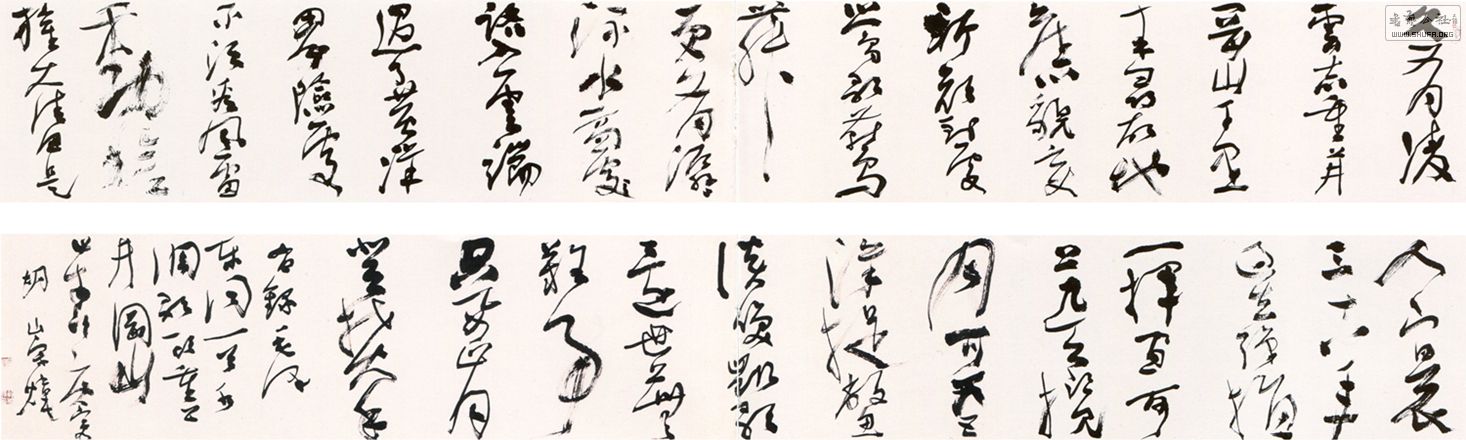 久有凌
雲志重上井
岡山千里
来尋故地
舊貌變
新顏到處
鶯歌燕
舞
更有潺
流水高
路入雲端
過了黃洋
界險處
不須看風雷
動旌
人寰
三十八年
過去彈指
一揮間可
上九天攬
月可下五
洋捉鱉
談笑凱歌
還世上無
難事
只要肯
登攀
右錄毛澤
東同志水
調歌頭重上
井岡山
WWW.SHUFA.ORG